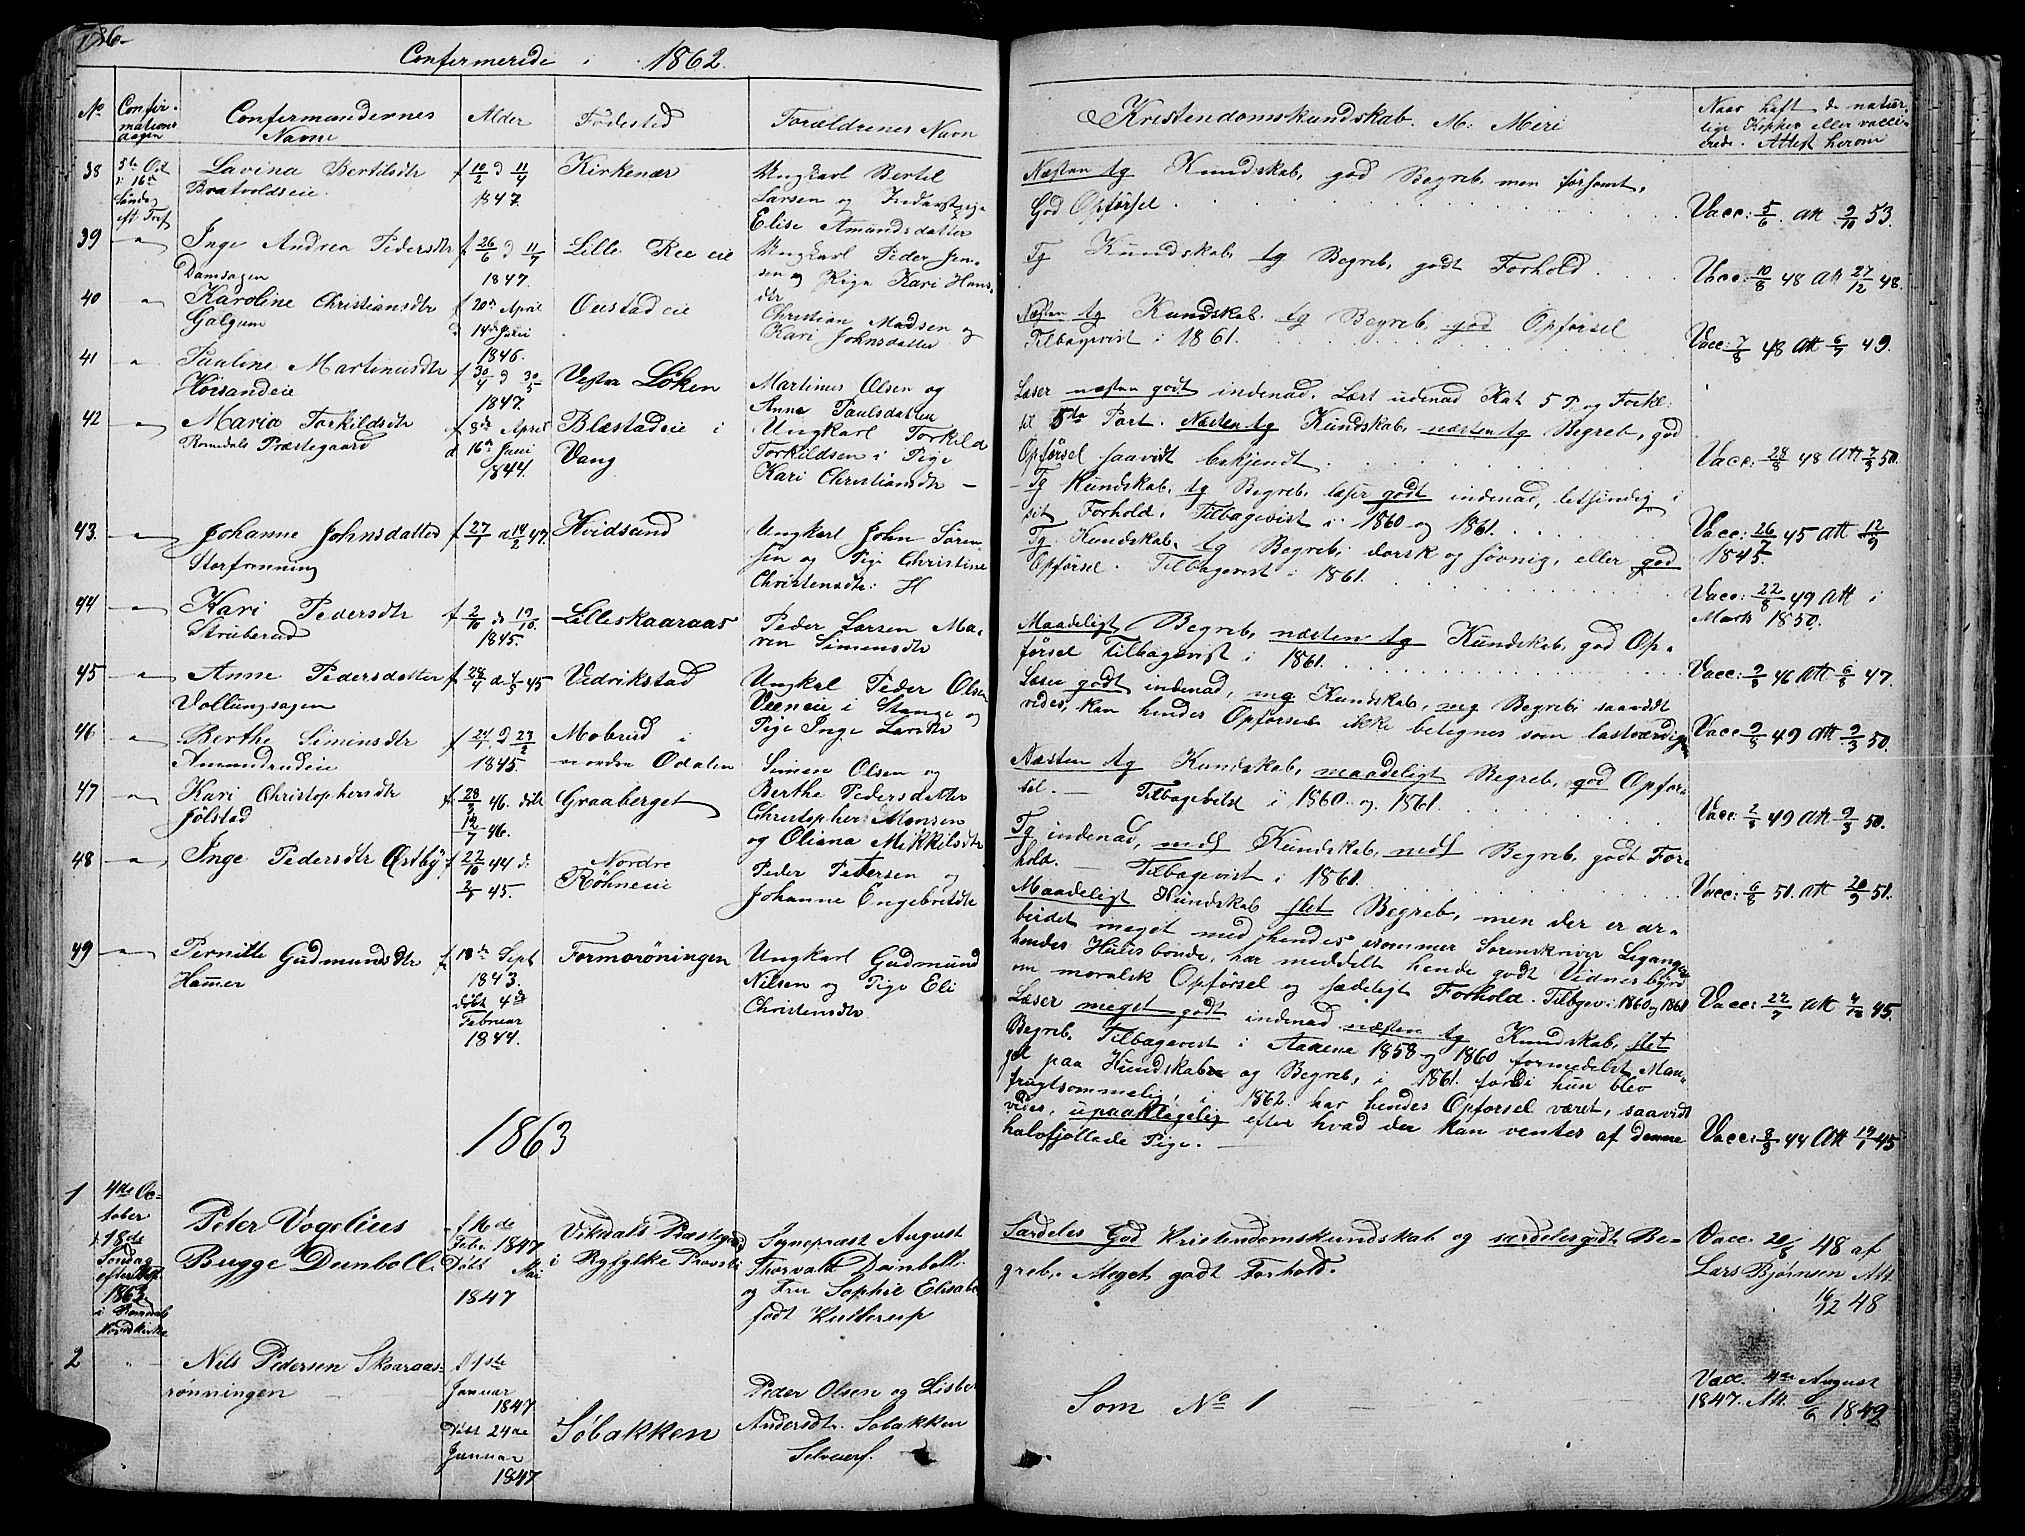 186-
Confermerede i 1862.
No
Confir-
mations
dagen
Confermandernes
Navne
Alder
Fødested
Forældrenes Navn
Kristendomskundskab. M: Meri
Naar haft de natur-
lige Kopper eller vacci-
nerede. Attest herom
38
5te Oct
i 16de
Søndag
eft Tref
Lavina Bertilsdtr
Bratvoldseie.
f 10/2 d 11/4
1847.
Kirkenær
Ungkarl Bertel
Larsen og
Elise Amundsdatter
Næsten tg Kundskab, god Begreb, men forsømt,
God Opførsel
Vacc: 5/6. Att 9/10 53.
39
Inge Andrea Pedersdtr
Damsagen
f 26/6 d 11/7
1847.
Lille Ree eie
Ungkarl Peder Jen-
sen og Pige Kari Hans-
dtr
Tg Kundskab, tg Begreb, godt Forhold
Vacc: 10/8 48 Att 27/12 48.
40
Karoline Christiansdtr
Galgum
f 20de April
d 14de Juni
1846.
Oustad eie
Christian Madsen og
Kari Johnsdatter
Næsten tg Kundskab, tg Begreb, god Opførsel
Tilbagevist i 1861.
Vacc: 7/8 48 Att 6/7 49.
41
Pauline Martinusdtr
Høisandeie
f 30/4 d 30/5
1847.
Vestre Løken
Martinus Olsen og
Anne Paulsdatter
Læser næsten godt indenad. Lært udenad Kat 5 P. og Forkl:
til 5te Part. Næsten tg Kundskab, næsten tg Begreb, god
Opførsel saavidt bekjendt.
Vacc: 28/8 48 Att 7/3 50.
42
Maria Torkildsdtr
Romedals Præstegaard
f 8de April
d 16de Juni
1844.
Blæstadeie i
Vang
Ungkarl Torkild
Torkildsen i Pige
Kari Christiansdtr -
Tg Kundskab, tg Begreb, læser godt indenad, letsindig i
sit Forhold. Tilbagevist i 1860 og 1861.
Vacc: 26/7 45 Att 12/9
1845.
43.
Johanne Johnsdatter
Storfenning
f 27/1 d 14/2 47.
Hvidsand
Ungkarl John Søren-
sen og Pige Christine
Christensdtr: H
Tg. Kundskab, tg Begreb, dorsk og søvnig, eller god
Opførsel. Tilbagevist i 1861.
Vacc: 22/8 49 Att i
Marts 1850.
44
Kari Pedersdtr
Struberud
f 2/10 d 19/10.
1845.
Lilleskaaraas
Peder Larsen Ma-
ren Simensdtr
Maadeligt Begreb, næsten tg Kundskab, god Op-
førsel Tilbagevist i 1861.
Vacc: 9/8 46 Att 6/8 47.
45
Anne Pedersdatter
Vollungsagen
f 24/4 d 4/5 45
Vedrikstad
Ungkal Peder Olsen
Veeneie i Stange og
Pige Inge Larsdtr
Læser godt indenad, mg Kundskab, mg Begreb, saavidt
vides, kan hendes Opførsel ikke betegnes som lastværdig
Vacc 9/8 49 Att 9/3 50.
46
Berthe Simensdtr
Amundrudeie
f 24/1 d 23/2
1845.
Mobrud i
nordre Odalen
Simen Olsen og
Berthe Pedersdatter
Næsten tg Kundskab, maadeligt Begreb, god Opfør-
sel. - Tilbagevist i 1860 og 1861.
Vacc: 2/8 49 Att 9/3 50.
47
Kari Christophersdtr
Jølstad
f 28/3 46. døbt
19/7 46.
Graaberget
Christopher Monsen
og Oliana Mikkilsdtr
Tg indenad, mdl Kundskab, mdl Begreb, godt For-
hold. - Tilbagevist i 1861.
Vacc: 6/8 50. Att 20/9 51.
48
Inge Pedersdtr Østby
f 22/10 44 d:
2/3 45.
Nordre
Røhneeie
Peder Petersen og
Johanne Engebretsdtr
Maadeligt Kundskab slet Begreb, men der er ar-
beidet meget med hendes Sorenskriver
hendes Huusbonde, har meddelt hende godt Vidnesbyrd
om moralsk Opførsel og sædeligt Forhold. Tilbagev: i 1860 og 1861
Vacc: 22/7 Att 4/12 45.
49
Pernille Gudmundsdtr
Hammer
f 18de Sept
1843.
døbt 4de
Februar
1844.
Formorøningen
Ungkarl Gudmund
Nilsen og Pige Eli
Christensdtr
Læser meget godt indenad næsten tg Kundskab, slet
Begreb. Tilbagevist i Aarene 1858 og 1860 formedelst Man-
gel paa Kundskaber og Begreb, i 1861. fordi hun blev
frugtsommelig, i 1862. har hendes Opførsel været, saavidt
vides, upaaklagelig efter hvad der kan ventes af denne
halvfjollede Pige. -
Vacc: 8/8 44 Att 19/1 45
1863
1
4de Oc-
tober
18de
Søndag
efter Tref
1863
i Romedals
Hovedkirke
Peter Vogelius
Bugge Deinboll.
f 16de
Febr. 1847
Døbt Mai
1847
Vikedals Præstegjeld
i Ryfylke Provsti
Sognepræst August
Thorvald Deinboll
og Frue Sophie Elisabe
født
Særdeles God Kristendomskundskab og særdeles godt Be-
greb. Meget godt Forhold.
Vacc. 20/8 48 af
Lars Bjørnsen Att.
16/12 48
2
Nils Pedersen Skaaraas-
rønningen
f 1ste
Januar
1847
Døbt 24de
Januar
1847
Søbakken
Peder Olsen og Lisbet
Andersdtr. Søbakken
Selveier
Som No 1
Vacc. 4de August
1847. Att. 6/6 1849